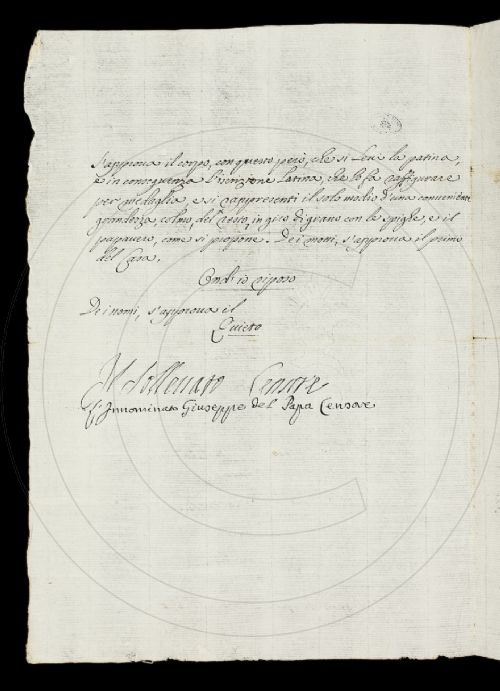 S'approva il corpo, con questo però, che si Levi la patina,
e in conseguenza l'iscrizione latina, che la fa raffigurare
per medaglia, e si rappresenti il solo modio d'una conveniente
grandezza colmo, del resto, in giro di grano con le spighe, e il
papavero, come si propone. Dei motti, s'approva il primo
del Casa.
Ond' io riposo
Dei nomi, s'approva il
Quieto
Il Sollevato Censore
L'Innominato Giuseppe del Papa Censore